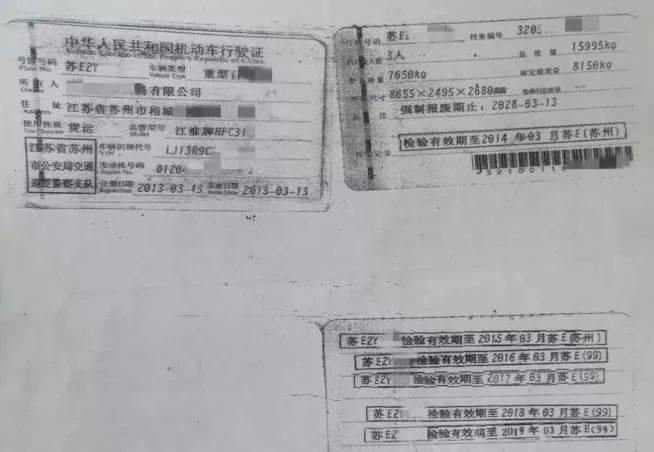 中华人民共和国机动车行驶证
Vehicle License of the People's Republic of China
号牌号码 苏E2Y 车辆类型 重型
Plate No. Vehicle Type
所有人 有限公司
Owner
住址 江苏省苏州市相城
Address
使用性质 货运 品牌型号 江淮牌HFC31
Use Character Model
江苏省苏州 车辆识别代号 LJ13R9C
VIN
市公安局交通 发动机号码 0120
Engine No.
巡逻警察支队 注册日期 2013-03-13 发证日期 2013-03-13
Register Date Issue Date
号牌号码 苏E2 档案编号 320
3人 总质量 15995kg
质量 7650kg 核定载质量 8150kg
尺寸 8655×2495×2680
强制报废期止：2028-03-13
检验有效期至2014年03月苏E(苏州)
苏E2Y 检验有效期至2015年03月苏E(苏州)
苏E2Y 检验有效期至2016年03月苏E(99)
苏E2Y 检验有效期至2017年03月苏E(99)
苏E2 检验有效期至2018年03月苏E(99)
苏E2 检验有效期至2019年03月苏E(99)